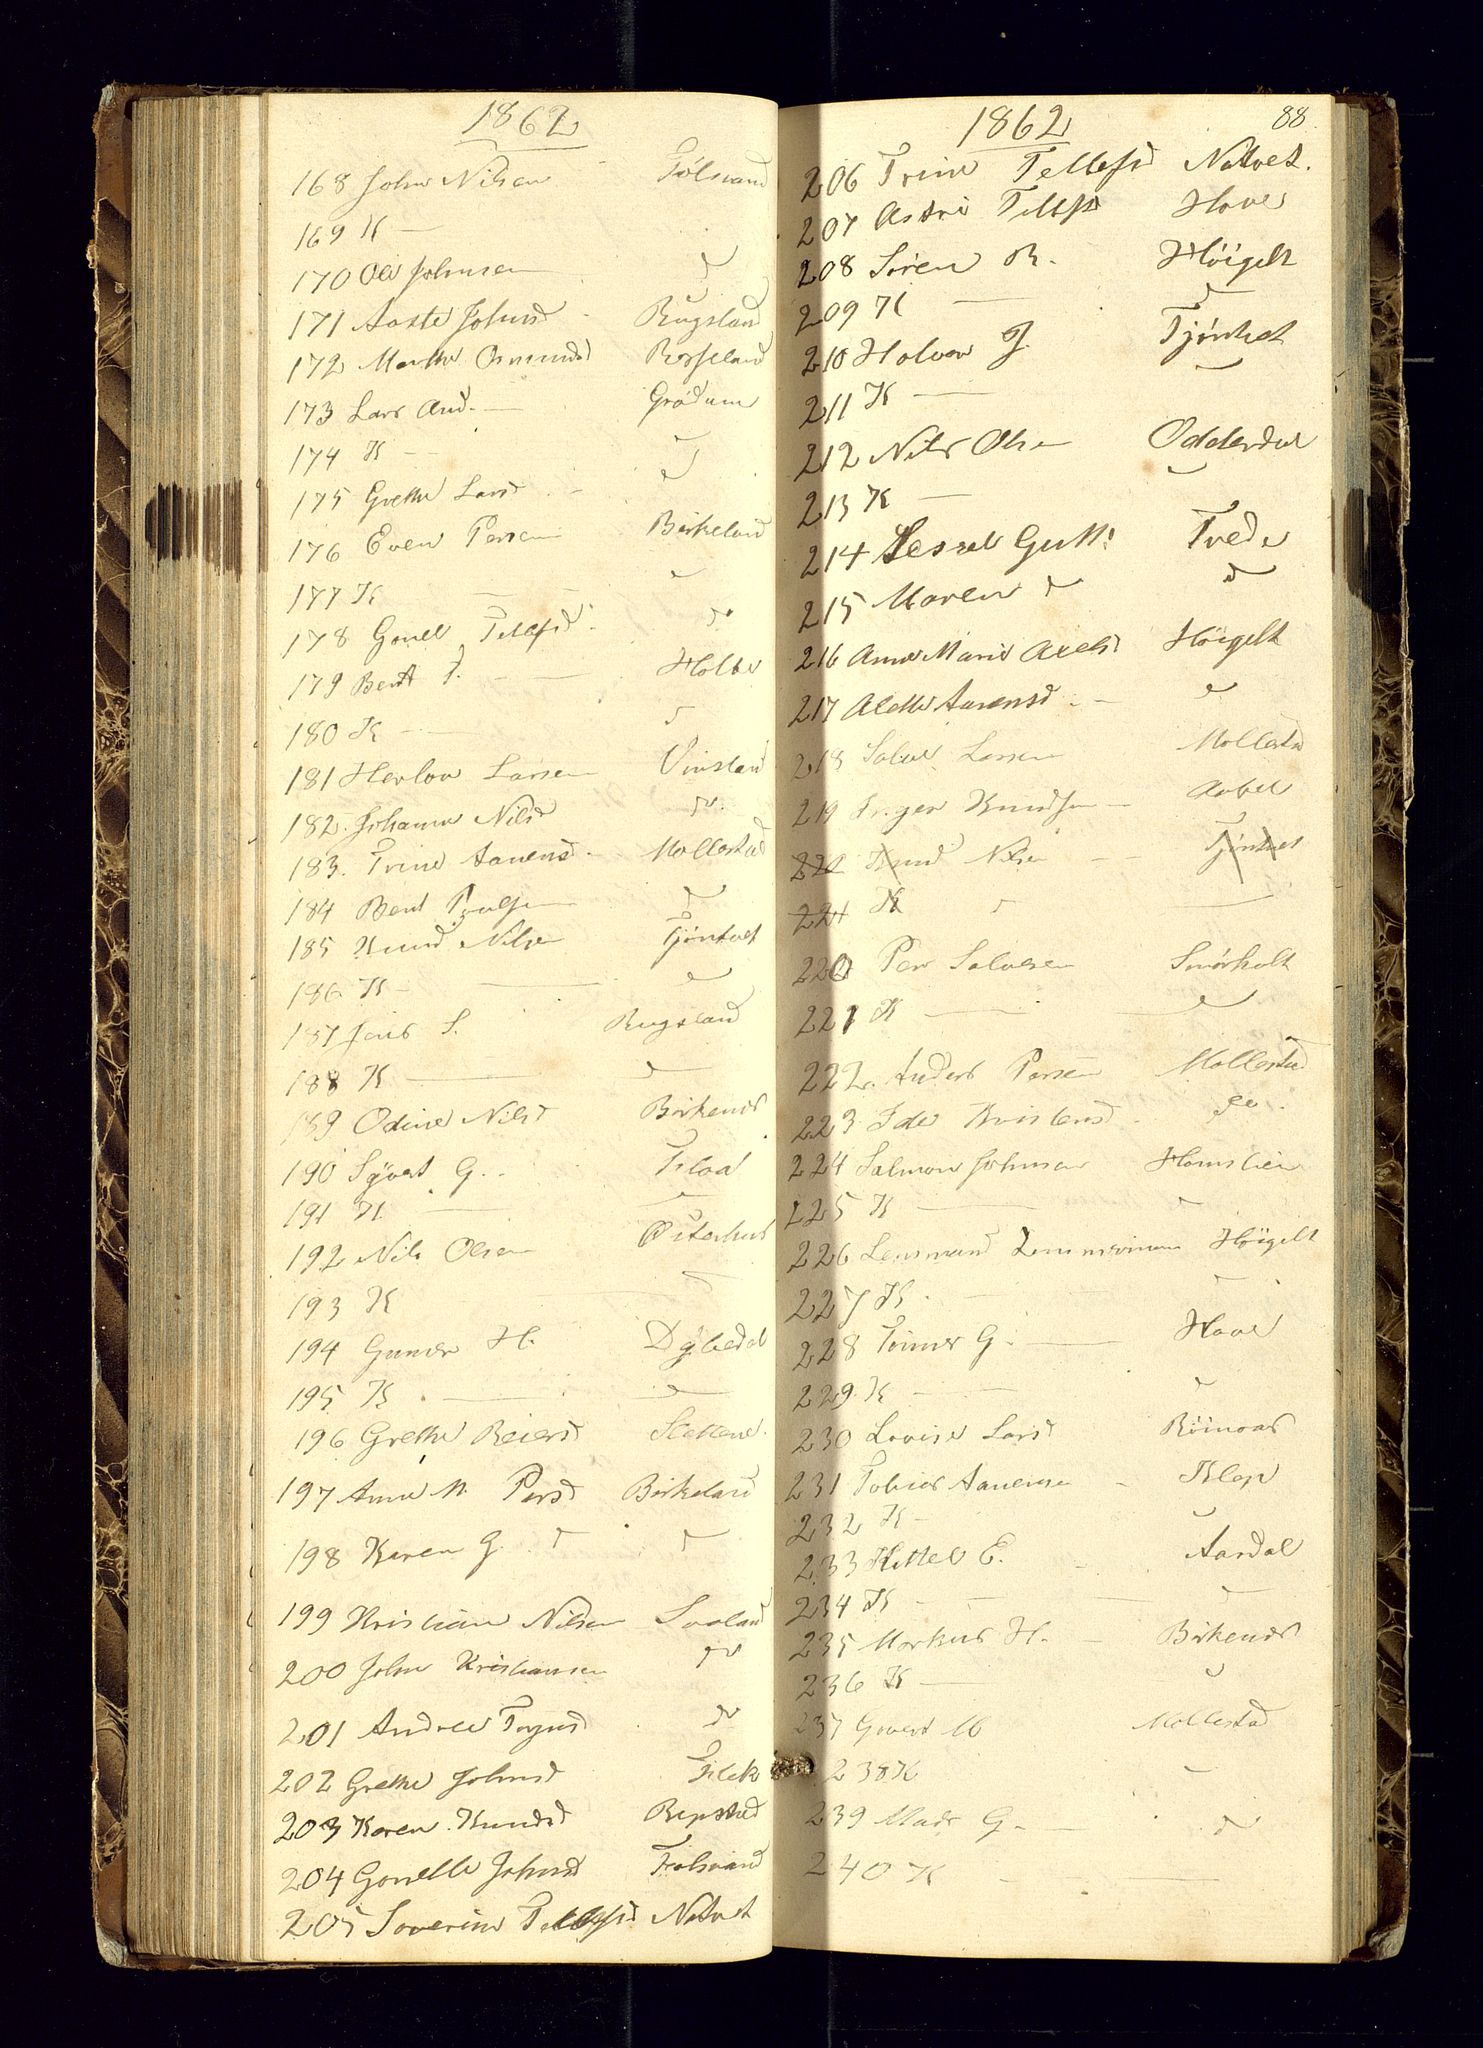 1862
168 John Nilsen Fölsvand
169 K —
170 Ole Johnsen d
171 Aaste Johnsd Rugsland
172 Marthe Osmundsd Rosseland
173 Lars And. — Grödum
174 K — d
175 Grethe Larsd — d
176 Even Persen Birkeland
177 K — —
178 Gonel Tellefsd. do
179 Bent T. — Holte
180 K — d
181 Herlov Larsen Vinsland
182. Johanne Nilsd do.
183. Trine Aanensd. Mollestad
184 Bent Poulsen d
185 Knud Nilsen Tjöntvet
186 K — —
187 Jens S. Rugsland
188 K — —
189 Odine Nilsd Birkenes
190 Syvert G. Flaa
191 K —
192 Nils Olsen Østerhus
193 K
194 Gunder H. Dybedal
195 K — —
196 Grethe Reiersd Slettene.
197 Anne M. Persd Birkeland
198 Karen G. d d
199 Kristian Nilsen Svaland
200 John Kristiansen do
201 Andrea Tergusd do
202 Grethe Johnsd Flek
203 Karen Knudsd Repstad
204 Gonelle Johnsd Fölsvand
205 Severine Tellefsd Natvet
1862 88
206 Trine Tellefsd Natvet.
207 Astri Tellefsd Hove
208 Sören R. Höigelt
209 K — d
210 Halvor J. Tjöntvet
211 K —
212 Nils Olsen Oddersdal
213 K —
214 Sessel Gutt. Tvede
215 Maren d d
216 Anne Marie Axelsd Höigelt
217 Alette Aanensd. —
218 Salve Larsen Mollestad
219 Inger Knudsen —
222 Knud Nilsen — Tjöntvet
221 K d —
220 Per Salvesen Smörholt
221 K —
222. Anders Persen Mollestad
223 Ide Kristensd. do.
224 Salmon Johnsen Homslien
225 K —
226 Lensmand Zimmermann Höigelt
227 K. —
228 Tomes G. — Hove
229. K — —
230 Lovise Larsd Röinaas
231 Tobias Aanensen — Klep
232 K —
233 Kittel E. Aardal
234 K — —
235 Markus H. — Birkenes
236 K —
237 Govert M Mollestad
238 K
239 Mads G. — d
240 K — —